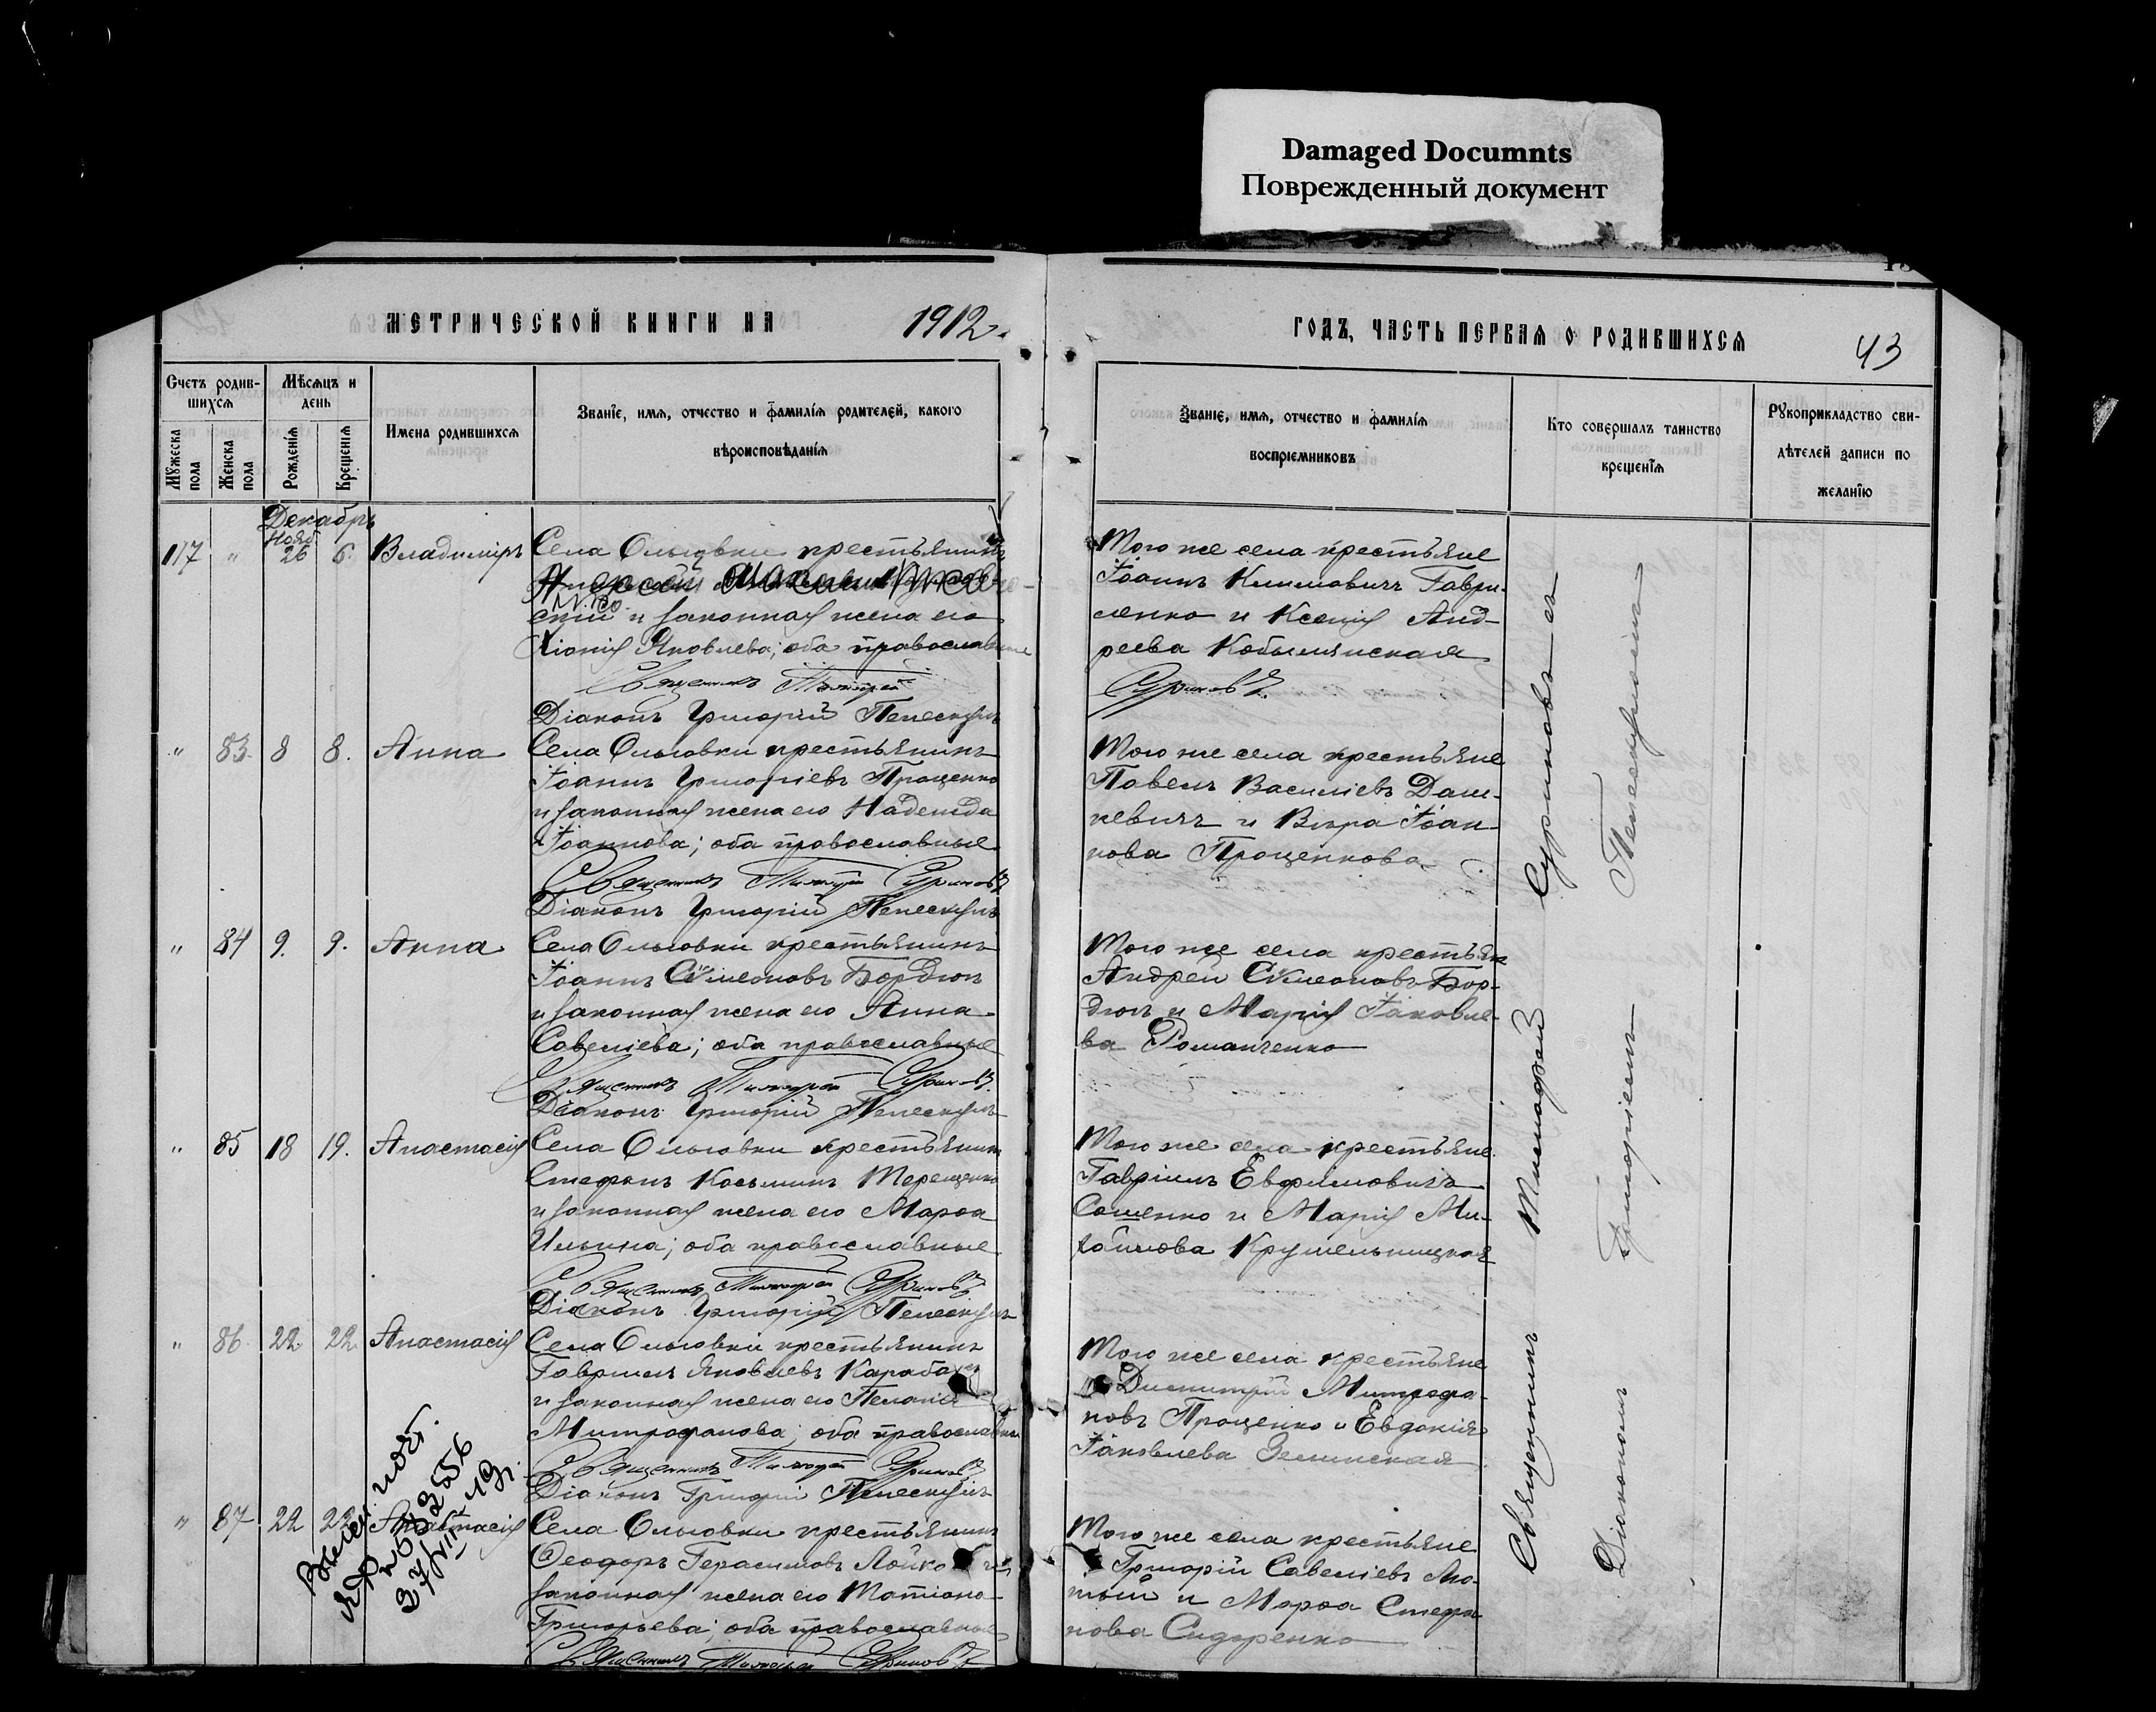 Damaged Documnts
Поврежденный документ
МЕТРИЧЕСКОЙ КНИГИ НА 1912.
ГОДЪ, ЧАСТЬ ПЕРВАЯ О РОДИВШИХСЯ
43
Счетъ родив-
шихся
Мѣсяцъ и
день
Мужеска
пола
Женска
пола
Рожденія
Крещенія
Имена родившихся
Званіе, имя, отчество и фамилія родителей, какого
вѣроисповѣданія
Званіе, имя, отчество и фамилія
воспріемниковъ
Кто совершалъ таинство
крещенія
Рукоприкладство сви-
дѣтелей записи по
желанію
Декабрь
Нояб.
117 " 26 6. Владиміръ
Села Ольговки крестьянинъ
скій и законная жена его
Хіонія Яковлева; оба православные
Священникъ
Діаконъ Григорій Пелескулъ
Того же села крестьяне
Іоаннъ Климовичъ Гаври-
ленко и Ксенія Анд-
реева Кобылянская
Суриновъ
" 83. 8 8. Анна
Села Ольговки крестьянинъ
Іоаннъ Григоріевъ Проценко
и законная жена его Надежда
Іоаннова; оба православные
Священникъ Тимофей Суриновъ
Діаконъ Григорій Пелескулъ
Того же села крестьяне
Павелъ Василіевъ Даш-
кевичъ и Вѣра Іоан-
нова Проценкова
" 84 9. 9. Анна
Села Ольговки крестьянинъ
Іоаннъ Симеоновъ Бордюк
и законная жена его Анна
Савеліева; оба православные
Священникъ Тимофей Суриновъ
Діаконъ Григорій Пелескулъ
Того же села крестьяне
Андрей Симеоновъ Бор-
дюк и Марія Іаковле-
ва Романченко
" 85 18 19. Анастасія
Села Ольговки крестьянинъ
Стефанъ Косьминъ Терещенко
и законная жена его Марѳа
Ильина; оба православные
Священникъ Тимофей Суриновъ
Діаконъ Григорій Пелескулъ
Того же села крестьяне
Гавріилъ Евфимовичъ
Сошенко и Марія Ми-
хайлова Крушельницкая
" 86. 22. 22. Анастасія
Села Ольговки крестьянинъ
Гавріилъ Яковлевъ
и законная жена его Пелагія
Митрофанова; оба православные
Священникъ Тимофей Суриновъ
Діаконъ Григорій Пелескулъ
Того же села крестьяне
Димитрій Митрофа-
новъ Проценко и Евдокія
Іаковлева Зелинская
" 87. 22 22 Анастасія
Села Ольговки крестьянинъ
Ѳеодоръ Герасимовъ Лойко и
законная жена его Татіана
Григорьева; оба православные
Священникъ Тимофей Суриновъ
Того же села крестьяне
Григорій Савеліевъ
и Марѳа Стефа-
нова Сидоренко
Священникъ Тимофей Суриновъ съ
Діакономъ Григоріемъ Пелескуломъ